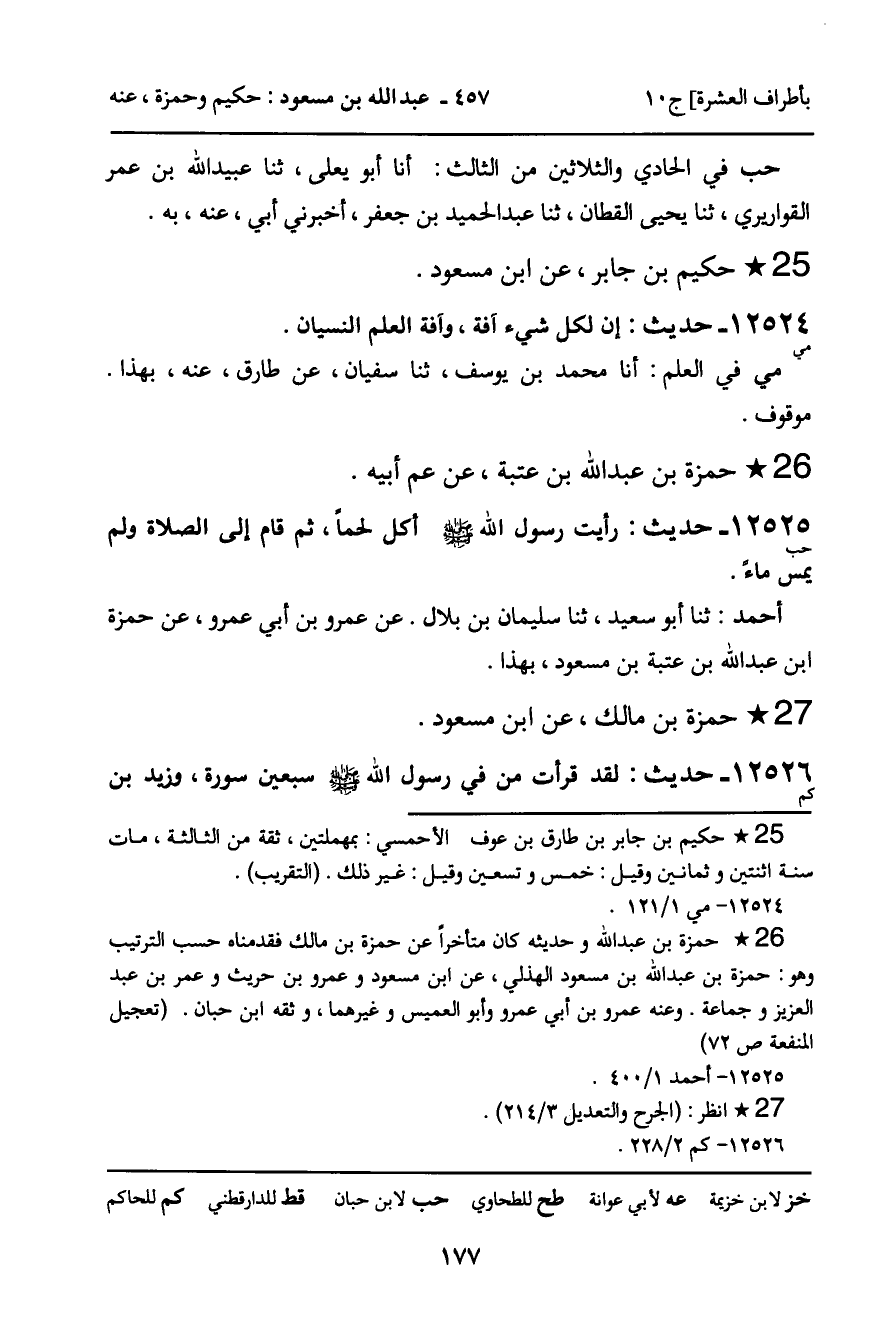 بأطراف العشرة] ج١٠ ٤٥٧ ـ عبدالله بن مسعود : حكيم وحمزة ، عنه
حب في الحادي والثلاثين من الثالث : أنا أبو يعلى ، ثنا عبيدالله بن عمر
القواريري ، ثنا يحيى القطان ، ثنا عبدالحميد بن جعفر ، أخبرني أبي ، عنه ، به .
25 ★ حكيم بن جابر ، عن ابن مسعود .
١٢٥٢٤ـ حديث : إن لكل شيء آفة ، وآفة العلم النسيان .
مي
مي في العلم : أنا محمد بن يوسف ، ثنا سفيان ، عن طارق ، عنه ، بهذا .
موقوف .
26 ★ حمزة بن عبدالله بن عتبة ، عن عم أبيه .
١٢٥٢٥ـ حديث : رأيت رسول الله ﷺ أكل لحماً ، ثم قام إلى الصلاة ولم
حب
يمس ماءً .
أحمد : ثنا أبو سعيد ، ثنا سليمان بن بلال . عن عمرو بن أبي عمرو ، عن حمزة
ابن عبدالله بن عتبة بن مسعود ، بهذا .
27 ★ حمزة بن مالك ، عن ابن مسعود .
١٢٥٢٦ـ حديث : لقد قرأت من في رسول الله ﷺ سبعين سورة ، وزيد بن
كم
25 ★ حكيم بن جابر بن طارق بن عوف الأحمسي : بمهملتين ، ثقة من الثالثة ، مات
سنة اثنتين و ثمانين وقيل : خمس و تسعين وقيل : غير ذلك . (التقريب) .
١٢٥٢٤– مي ١٢١/١ .
26 ★ حمزة بن عبدالله و حديثه كان متأخراً عن حمزة بن مالك فقدمناه حسب الترتيب
وهو : حمزة بن عبدالله بن مسعود الهذلي ، عن ابن مسعود و عمرو بن حريث و عمر بن عبد
العزيز و جماعة . وعنه عمرو بن أبي عمرو وأبو العميس و غيرهما ، و ثقه ابن حبان . (تعجيل
المنفعة ص ٧٢)
١٢٥٢٥– أحمد ٤٠٠/١ .
27 ★ انظر : (الجرح والتعديل ٢١٤/٣) .
١٢٥٢٦– كم ٢٢٨/٢ .
خز لابن خزيمة عه لأبي عوانة طح للطحاوي حب لابن حبان قط للدارقطني كم للحاكم
١٧٧